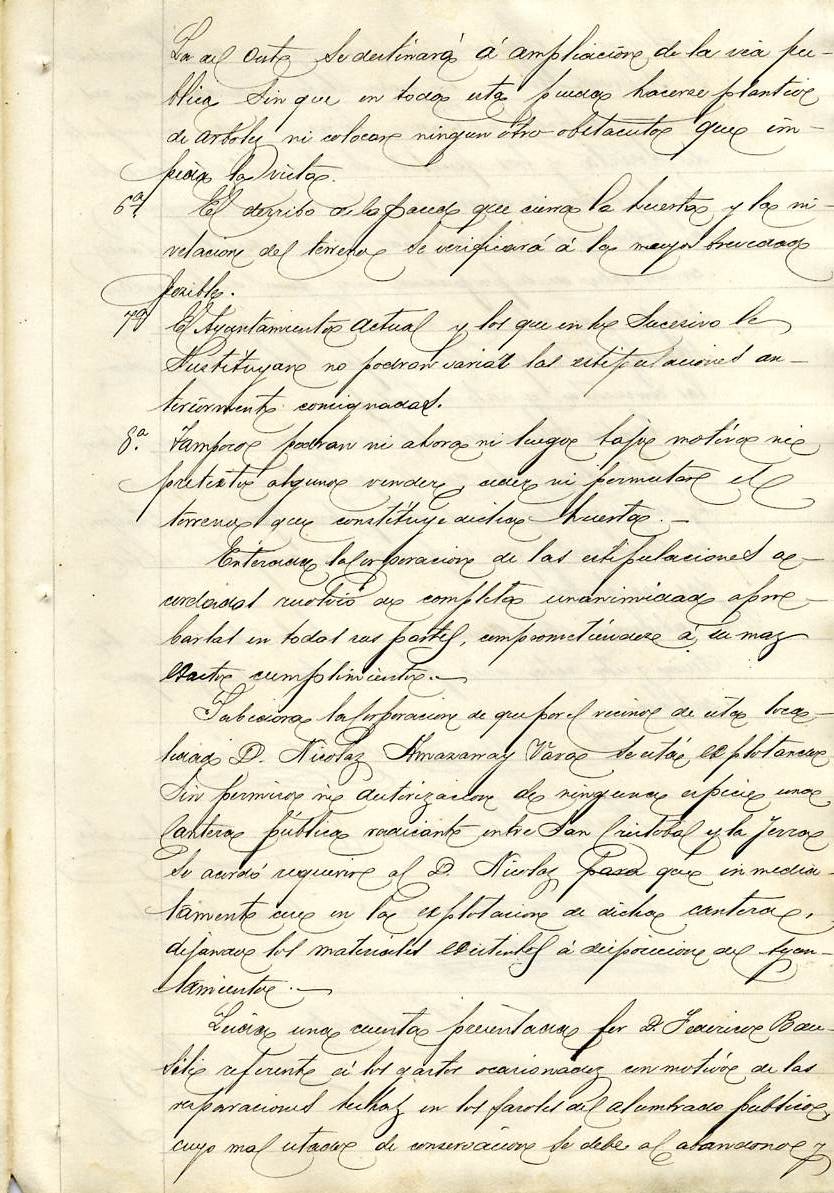 La del Oeste se destinará á ampliacion de la via pu-
blica sin que en toda esta pueda hacerse plantio
de arboles ni colocar ningun otro obstaculo que im-
pida la vista.
6ª El derribo de la pared que cierra la huerta y la ni-
velacion del terreno se verificará á la mayor brevedad
posible.
7ª El Ayuntamiento actual y los que en lo sucesivo le
sustituyan no podran variar las estipulaciones an-
teriormente consignadas.
8.ª Tampoco podran ni ahora ni luego bajo motivo ni
pretexto alguno vender, ceder ni permutar el
terreno que constituye dicha huerta.-
Enterada la Corporacion de las estipulaciones a-
cordadas resolvió de completa unanimidad apro-
barlas en todas sus partes, comprometiéndose á su mas
exacto cumplimiento.-
Sabedora la Corporacion de que por el vecino de esta loca-
lidad D. Nicolas Almazarray Vara se está explotando
sin permiso ni autorizacion de ninguna especie una
cantera pública radicante entre San Cristobal y la Jerra
se acordó requerir al D. Nicolas para que inmedia-
tamente cese en la explotacion de dicha cantera,
dejando los materiales existentes á disposicion del Ayun-
tamiento.-
Leida una cuenta presentada por D. Federico Bau-
referente á los gastos ocasionados con motivo de las
reparaciones hechas en los faroles del alumbrado público,
cuyo mal estado de conservacion se debe al abandono y